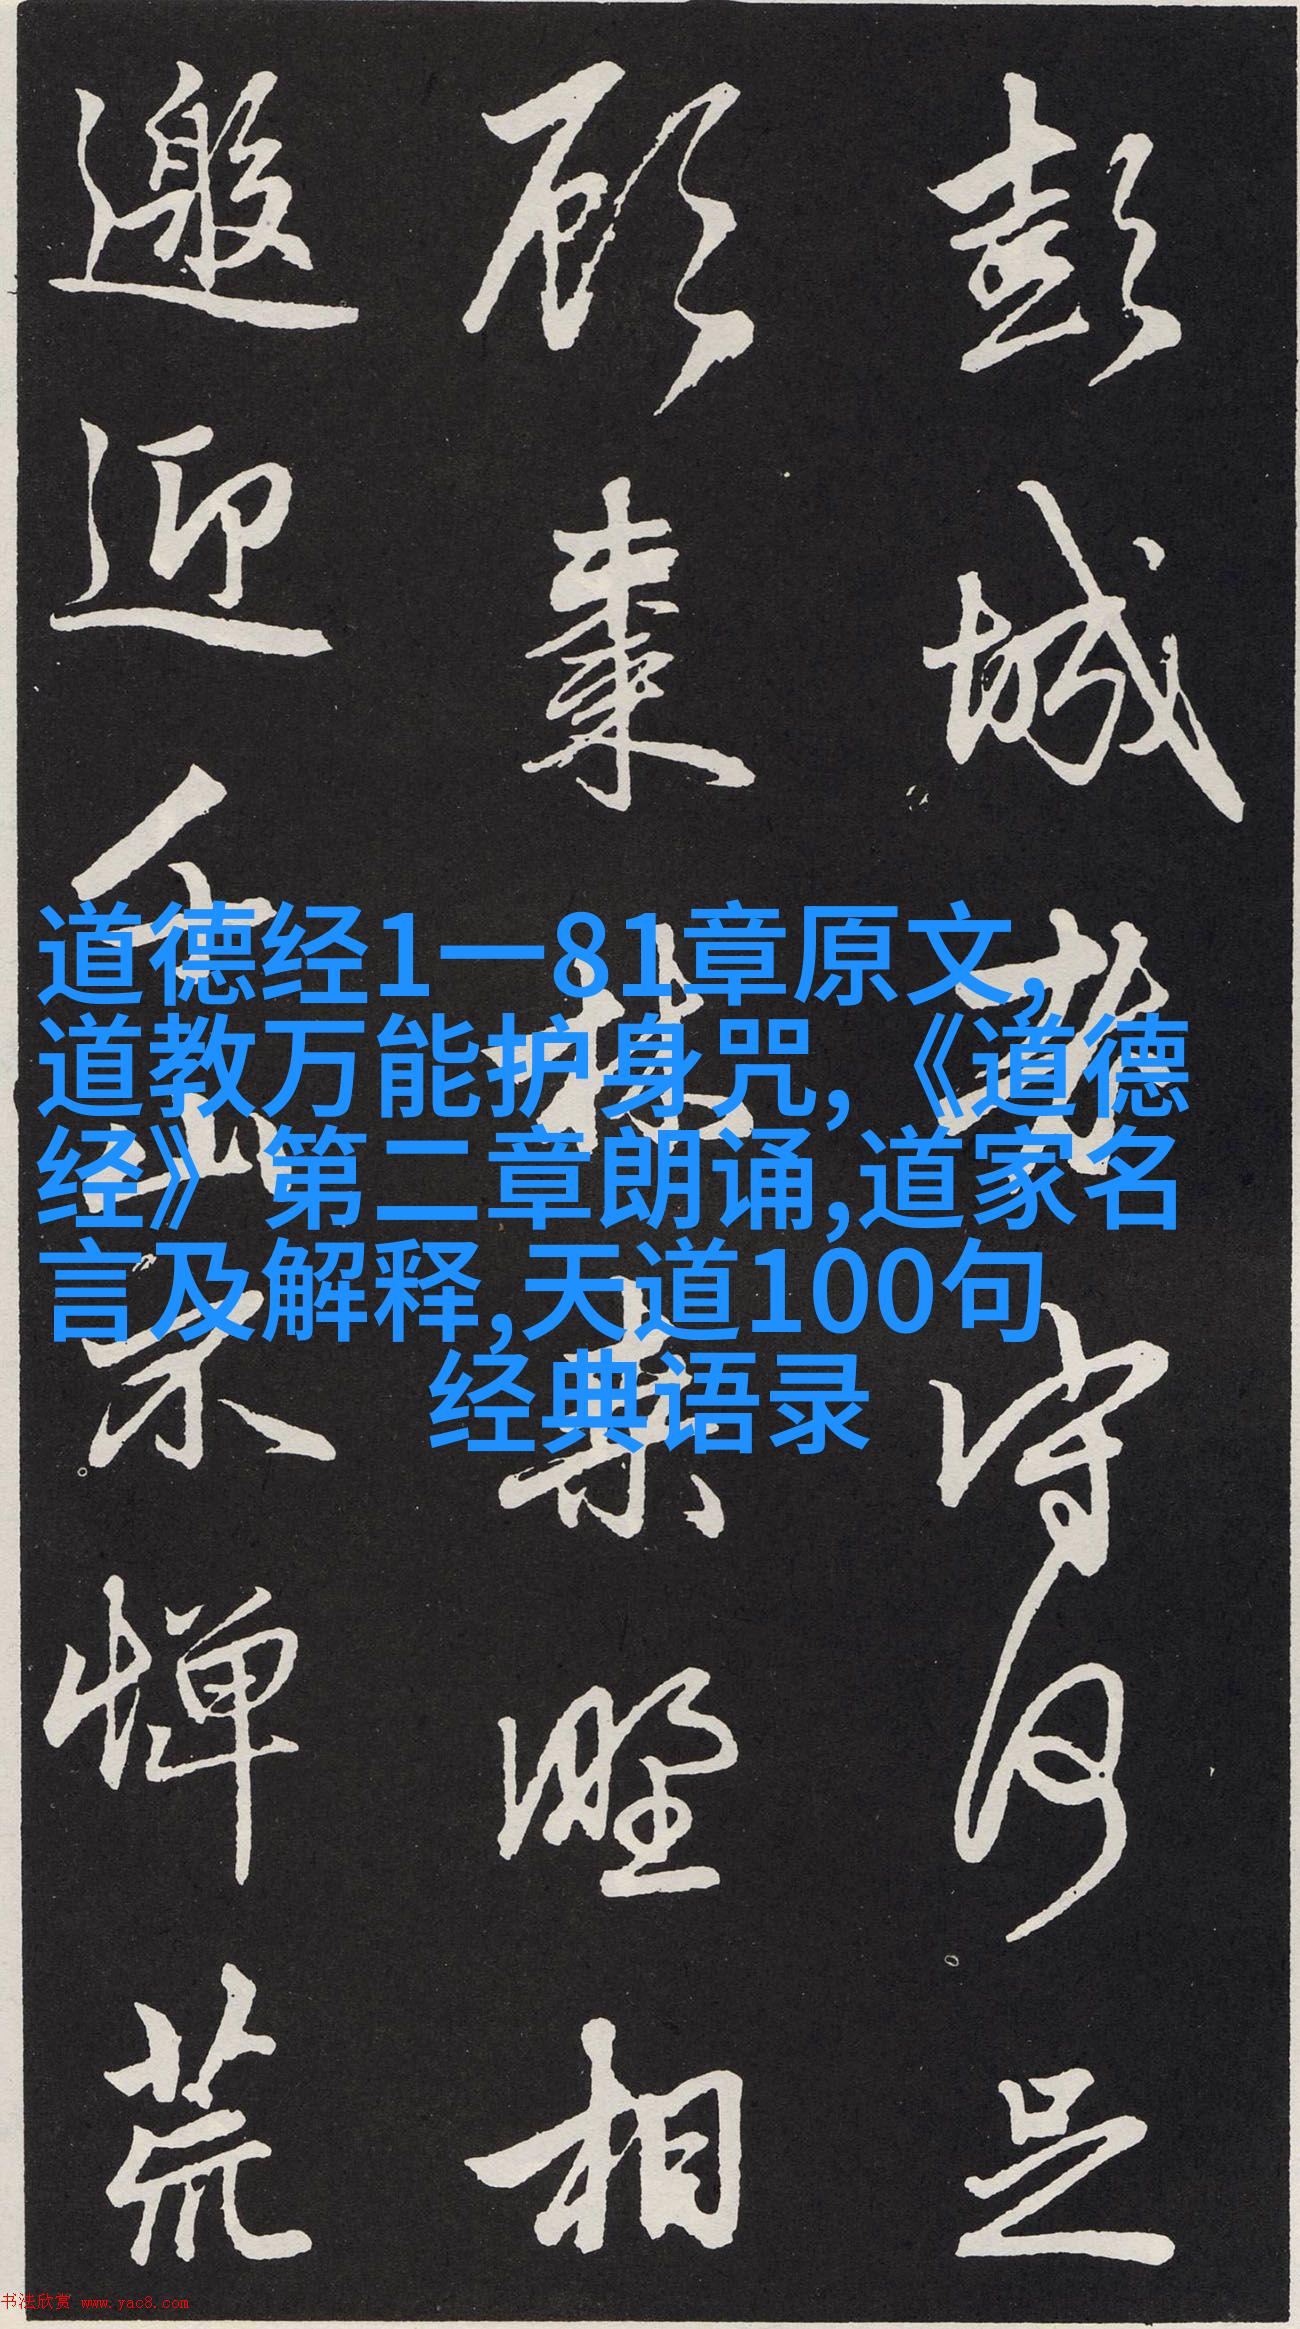 彭城老守何足
顧棗林桑野相
邀迎千山不憚荒
道德经1一81章原文,
道教万能护身咒,《道德
经》第二章朗诵,道家名
言及解释,天道100句
经典语录
书法欣赏 www.yac8.com